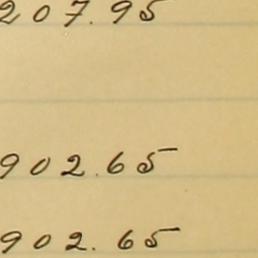 207.95
902.65
902.65